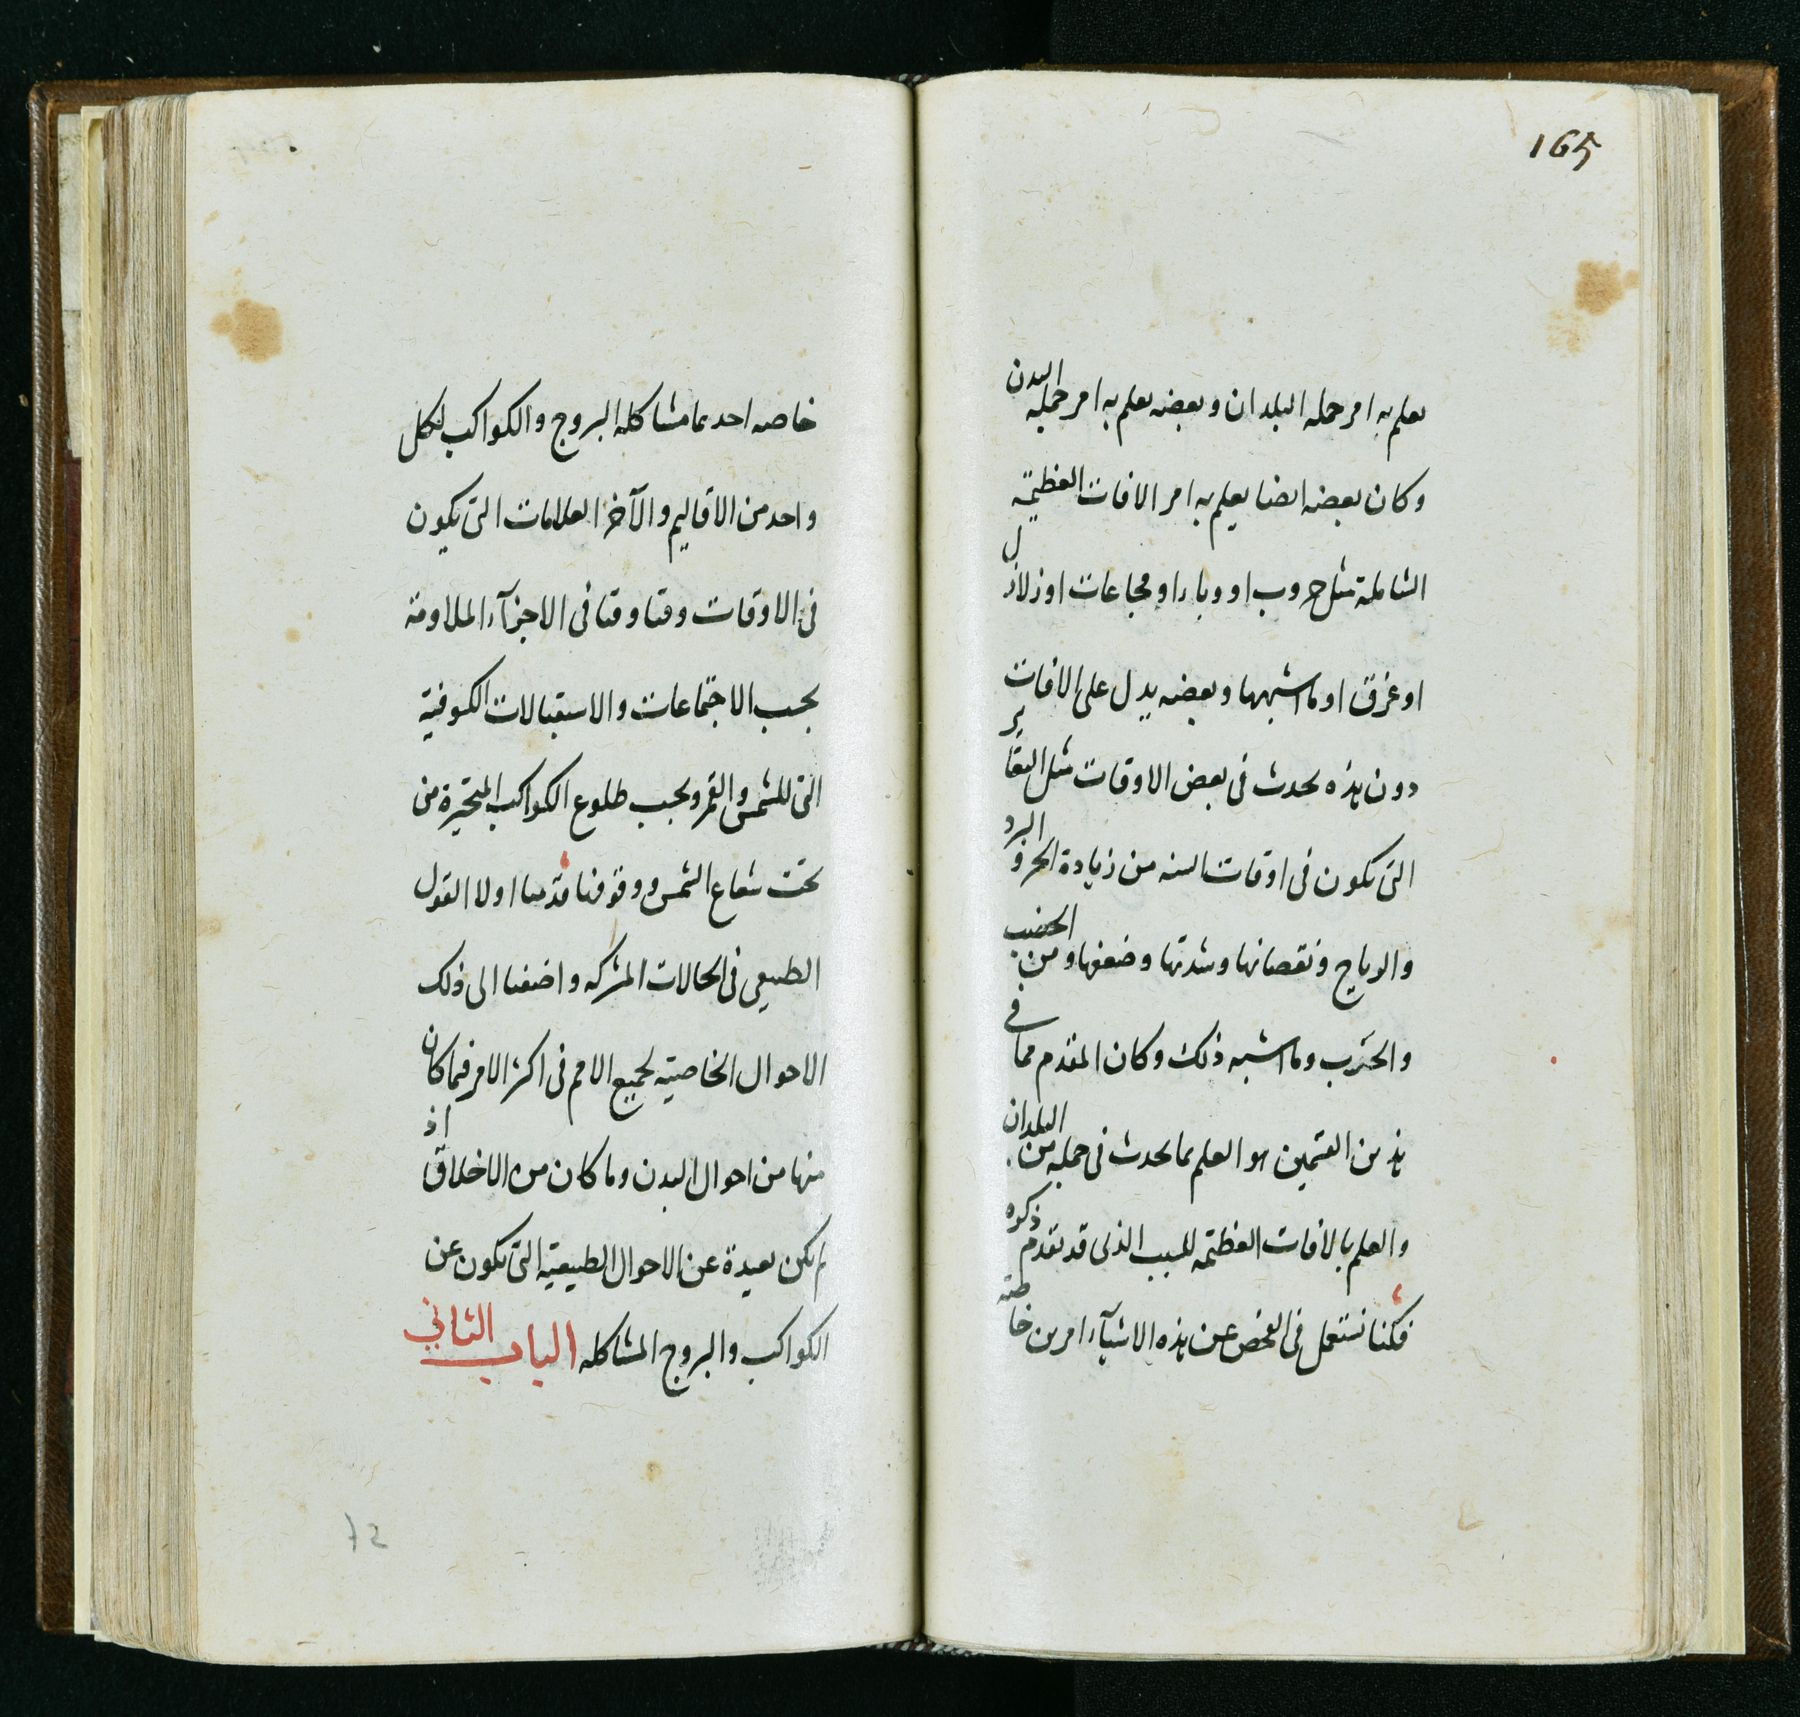 165
يعلم به امر جمله البلدان وبعضه يعلم به امر جملة البدن
وكان بعضه ايضا يعلم به امر الافات العظيمة
الشاملة مثل حروب او وباء او مجاعات او زلازل
او غرق او ما اشبهها وبعضه يدل على الافات
دون هذه يحدث فى بعض الاوقات مثل التغاير
التى تكون فى اوقات السنه من زيادة الحر والبرد
والرياح ونقصانها وشدتها وضعفها ومن الخصب
والجدب وما اشبه ذلك وكان المقدم مما فى
هذين القسمين هو العلم بما يحدث فى جملة من البلدان
والعلم بالافات العظيمة للسبب الذى قد تقدم ذكره
فكنا نستعمل فى الفحص عن هذه الاشيآء امرين خاصة
خاصه احدهما مشاكله البروج والكواكب لكل
واحد من الاقاليم والآخر العلامات التى يكون
فى الاوقات وقتا وقتا فى الاجزآء الملاومة
بحسب الاجتماعات والاستقبالات الكسوفية
التى للشمس والقمر وبحسب طلوع الكواكب المتحيرة من
تحت شعاع الشمس ووقوفنا قدمنا اولا القول
الطبيعى فى الحالات المشتركه واضفنا الى ذلك
الاحوال الخاصية لجميع الامم فى اكثر الامر فيما كان
منها من احوال البدن وما كان من الاخلاق اذ
لم يكن بعيدة عن الاحوال الطبيعية التى تكون عن
الكواكب والبروج المشاكله الباب الثاني
72